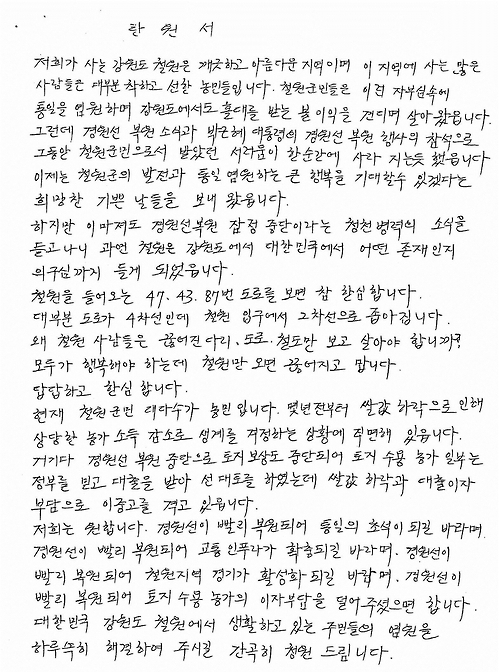 탄 원 서
저희가 사는 강원도 철원은 깨끗하고 아름다운 지역이며 이 지역에 사는 많은
사람들은 대부분 착하고 선한 농민들입니다. 철원군민들은 이런 자부심속에
통일을 염원하며 강원도에서도 홀대를 받는 불이익을 견디며 살아왔읍니다.
그런데 경원선 복원 소식과 박근혜 대통령의 경원선 복원 행사의 참석으로
그동안 철원군민으로서 받았던 서러움이 한순간에 사라 지는듯 했읍니다
이제는 철원군의 발전과 통일 염원하는 큰 행복을 기대할수 있겠다는
희망찬 기쁜 날들을 보내 왔읍니다.
하지만 이마저도 경원선복원 잠정 중단이라는 청천벽력의 소식을
듣고나니 과연 철원은 강원도에서 대한민국에서 어떤 존재인지
의구심까지 들게 되었읍니다.
철원을 들어오는 47. 43. 87번 도로를 보면 참 한심합니다.
대부분 도로가 4차선인데 철원 입구에서 2차선으로 좁아집니다.
왜 철원 사람들은 끊어진다리, 도로. 철도만 보고 살아야 합니까?
모두가 행복해야 하는데 철원만 오면 끊어지고 맙니다.
답답하고 한심 합니다.
현재 철원군민 대다수가 농민 입니다. 몇년전부터 쌀값 하락으로 인해
상당한 농가 소득 감소로 생계를 걱정하는 상황에 직면해 있읍니다.
거기다 경원선 복원 중단으로 토지보상도 중단되어 토지 수용 농가 일부는
정부를 믿고 대출을 받아 선 대토를 하였는데 쌀값 하락과 대출이자
부담으로 이중고를 겪고 있읍니다.
저희는 원합니다. 경원선이 빨리 복원되어 통일의 초석이 되길 바라며.
경원선이 빨리 복원되어 교통 인푸라가 확충되길 바라며. 경원선이
빨리 복원되어 철원지역 경기가 활성화 되길 바라며. 경원선이
빨리 복원되어 토지 수용 농가의 이자부담을 덜어주셨으면 합니다.
대한민국 강원도 철원에서 생활하고 있는 주민들의 염원을
하루속히 해결하여 주시길 간곡히 청원 드립니다.